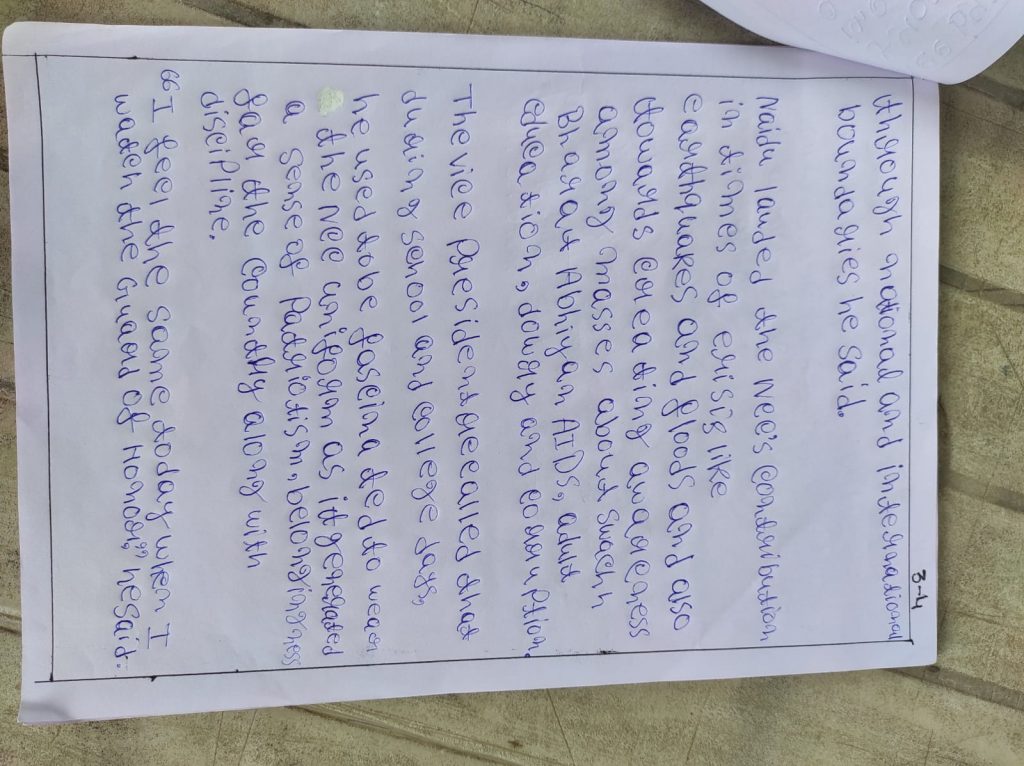 3-4
through national and international
boundaries he said.
Naidu lauded the NCC's contribution
in times of crisis like
earthquakes and floods and also
towards creating awareness
among masses about Swach
Bharat Abhiyan AIDS, adult
education, dowry and corruption.
The vice President recalled that
during school and college days,
he used to be fascinated to wear
the NCC uniform as it generated
a sense of Patriotism, belongingness
for the country along with
discipline.
"I feel the same today when I
watch the Guard of Honoor," he said.